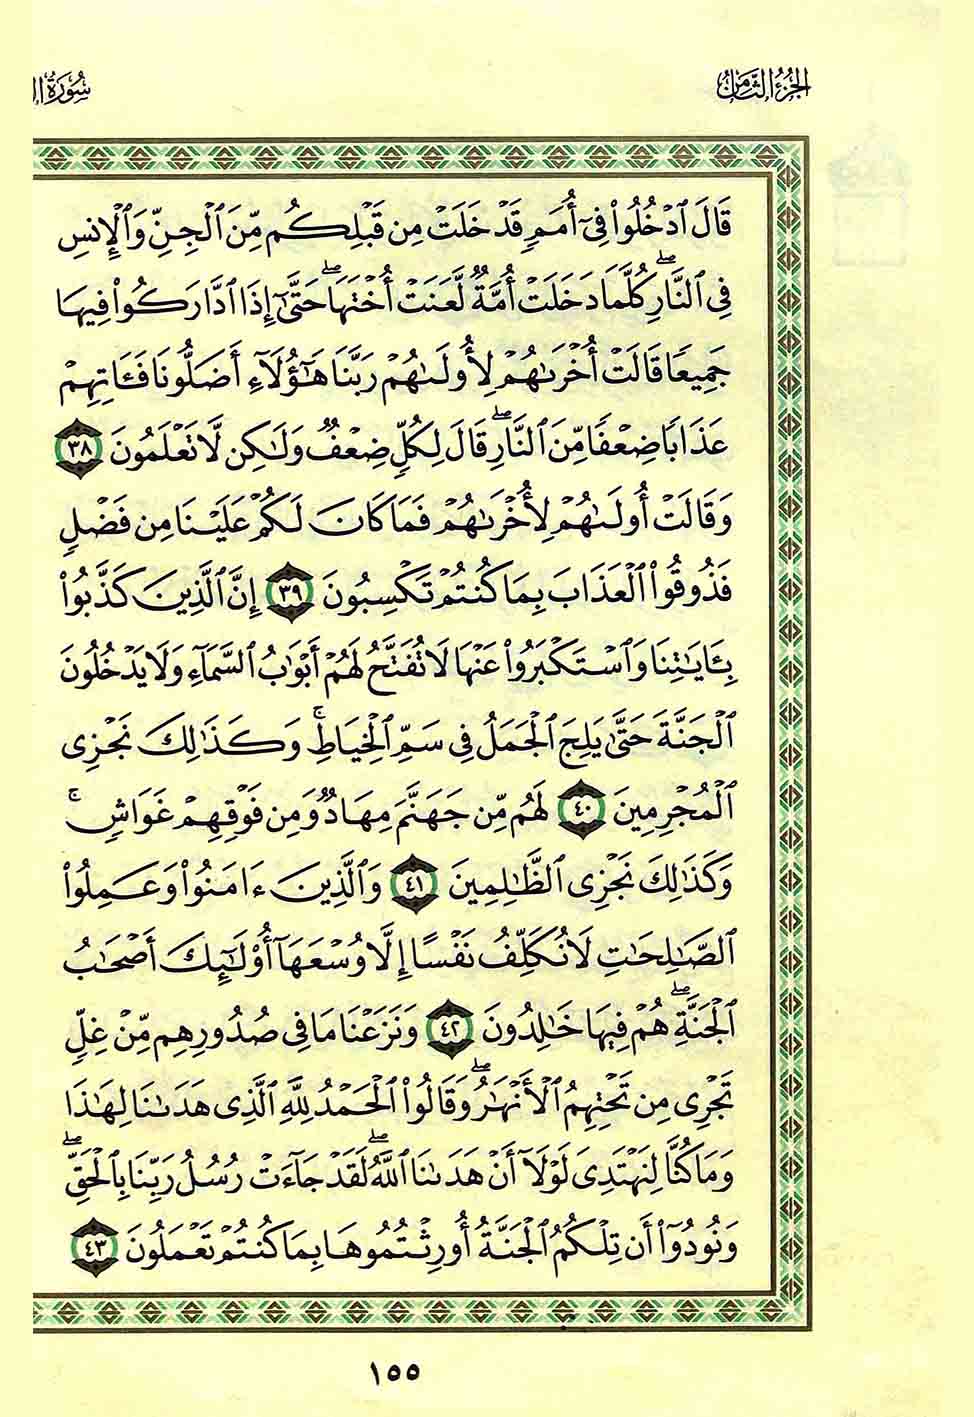 الجزء الثامن
سورة
قَالَ ٱدْخُلُوا۟ فِىٓ أُمَمٍ قَدْ خَلَتْ مِن قَبْلِكُم مِّنَ ٱلْجِنِّ وَٱلْإِنسِ
فِى ٱلنَّارِ ۖ كُلَّمَا دَخَلَتْ أُمَّةٌ لَّعَنَتْ أُخْتَهَا ۖ حَتَّىٰٓ إِذَا ٱدَّارَكُوا۟ فِيهَا
جَمِيعًا قَالَتْ أُخْرَىٰهُمْ لِأُولَىٰهُمْ رَبَّنَا هَـٰٓؤُلَآءِ أَضَلُّونَا فَـَٔاتِهِمْ
عَذَابًا ضِعْفًا مِّنَ ٱلنَّارِ ۖ قَالَ لِكُلٍّ ضِعْفٌ وَلَـٰكِن لَّا تَعْلَمُونَ ٣٨
وَقَالَتْ أُولَىٰهُمْ لِأُخْرَىٰهُمْ فَمَا كَانَ لَكُمْ عَلَيْنَا مِن فَضْلٍ
فَذُوقُوا۟ ٱلْعَذَابَ بِمَا كُنتُمْ تَكْسِبُونَ ٣٩ إِنَّ ٱلَّذِينَ كَذَّبُوا۟
بِـَٔايَـٰتِنَا وَٱسْتَكْبَرُوا۟ عَنْهَا لَا تُفَتَّحُ لَهُمْ أَبْوَٰبُ ٱلسَّمَآءِ وَلَا يَدْخُلُونَ
ٱلْجَنَّةَ حَتَّىٰ يَلِجَ ٱلْجَمَلُ فِى سَمِّ ٱلْخِيَاطِ ۚ وَكَذَٰلِكَ نَجْزِى
ٱلْمُجْرِمِينَ ٤٠ لَهُم مِّن جَهَنَّمَ مِهَادٌ وَمِن فَوْقِهِمْ غَوَاشٍ ۚ
وَكَذَٰلِكَ نَجْزِى ٱلظَّـٰلِمِينَ ٤١ وَٱلَّذِينَ ءَامَنُوا۟ وَعَمِلُوا۟
ٱلصَّـٰلِحَـٰتِ لَا نُكَلِّفُ نَفْسًا إِلَّا وُسْعَهَآ أُو۟لَـٰٓئِكَ أَصْحَـٰبُ
ٱلْجَنَّةِ ۖ هُمْ فِيهَا خَـٰلِدُونَ ٤٢ وَنَزَعْنَا مَا فِى صُدُورِهِم مِّنْ غِلٍّ
تَجْرِى مِن تَحْتِهِمُ ٱلْأَنْهَـٰرُ ۖ وَقَالُوا۟ ٱلْحَمْدُ لِلَّهِ ٱلَّذِى هَدَىٰنَا لِهَـٰذَا
وَمَا كُنَّا لِنَهْتَدِىَ لَوْلَآ أَنْ هَدَىٰنَا ٱللَّهُ ۖ لَقَدْ جَآءَتْ رُسُلُ رَبِّنَا بِٱلْحَقِّ ۖ
وَنُودُوٓا۟ أَن تِلْكُمُ ٱلْجَنَّةُ أُورِثْتُمُوهَا بِمَا كُنتُمْ تَعْمَلُونَ ٤٣
١٥٥